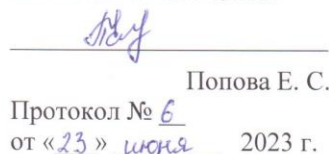 Попова Е. С.
Протокол № 6
от «23» июня 2023 г.